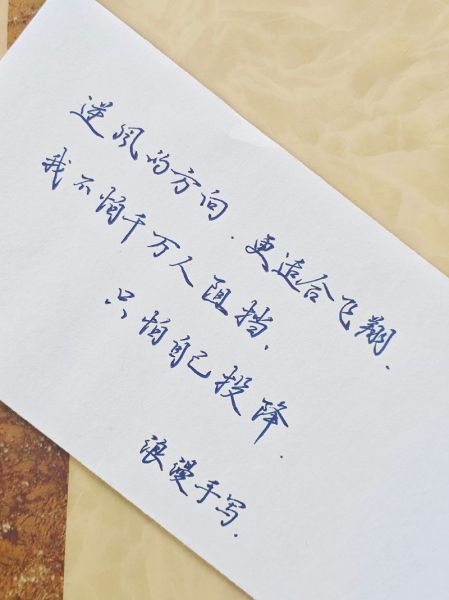 逆风的方向.更适合飞翔、
我不怕千万人阻挡、
只怕自己投降.
浪漫手写.